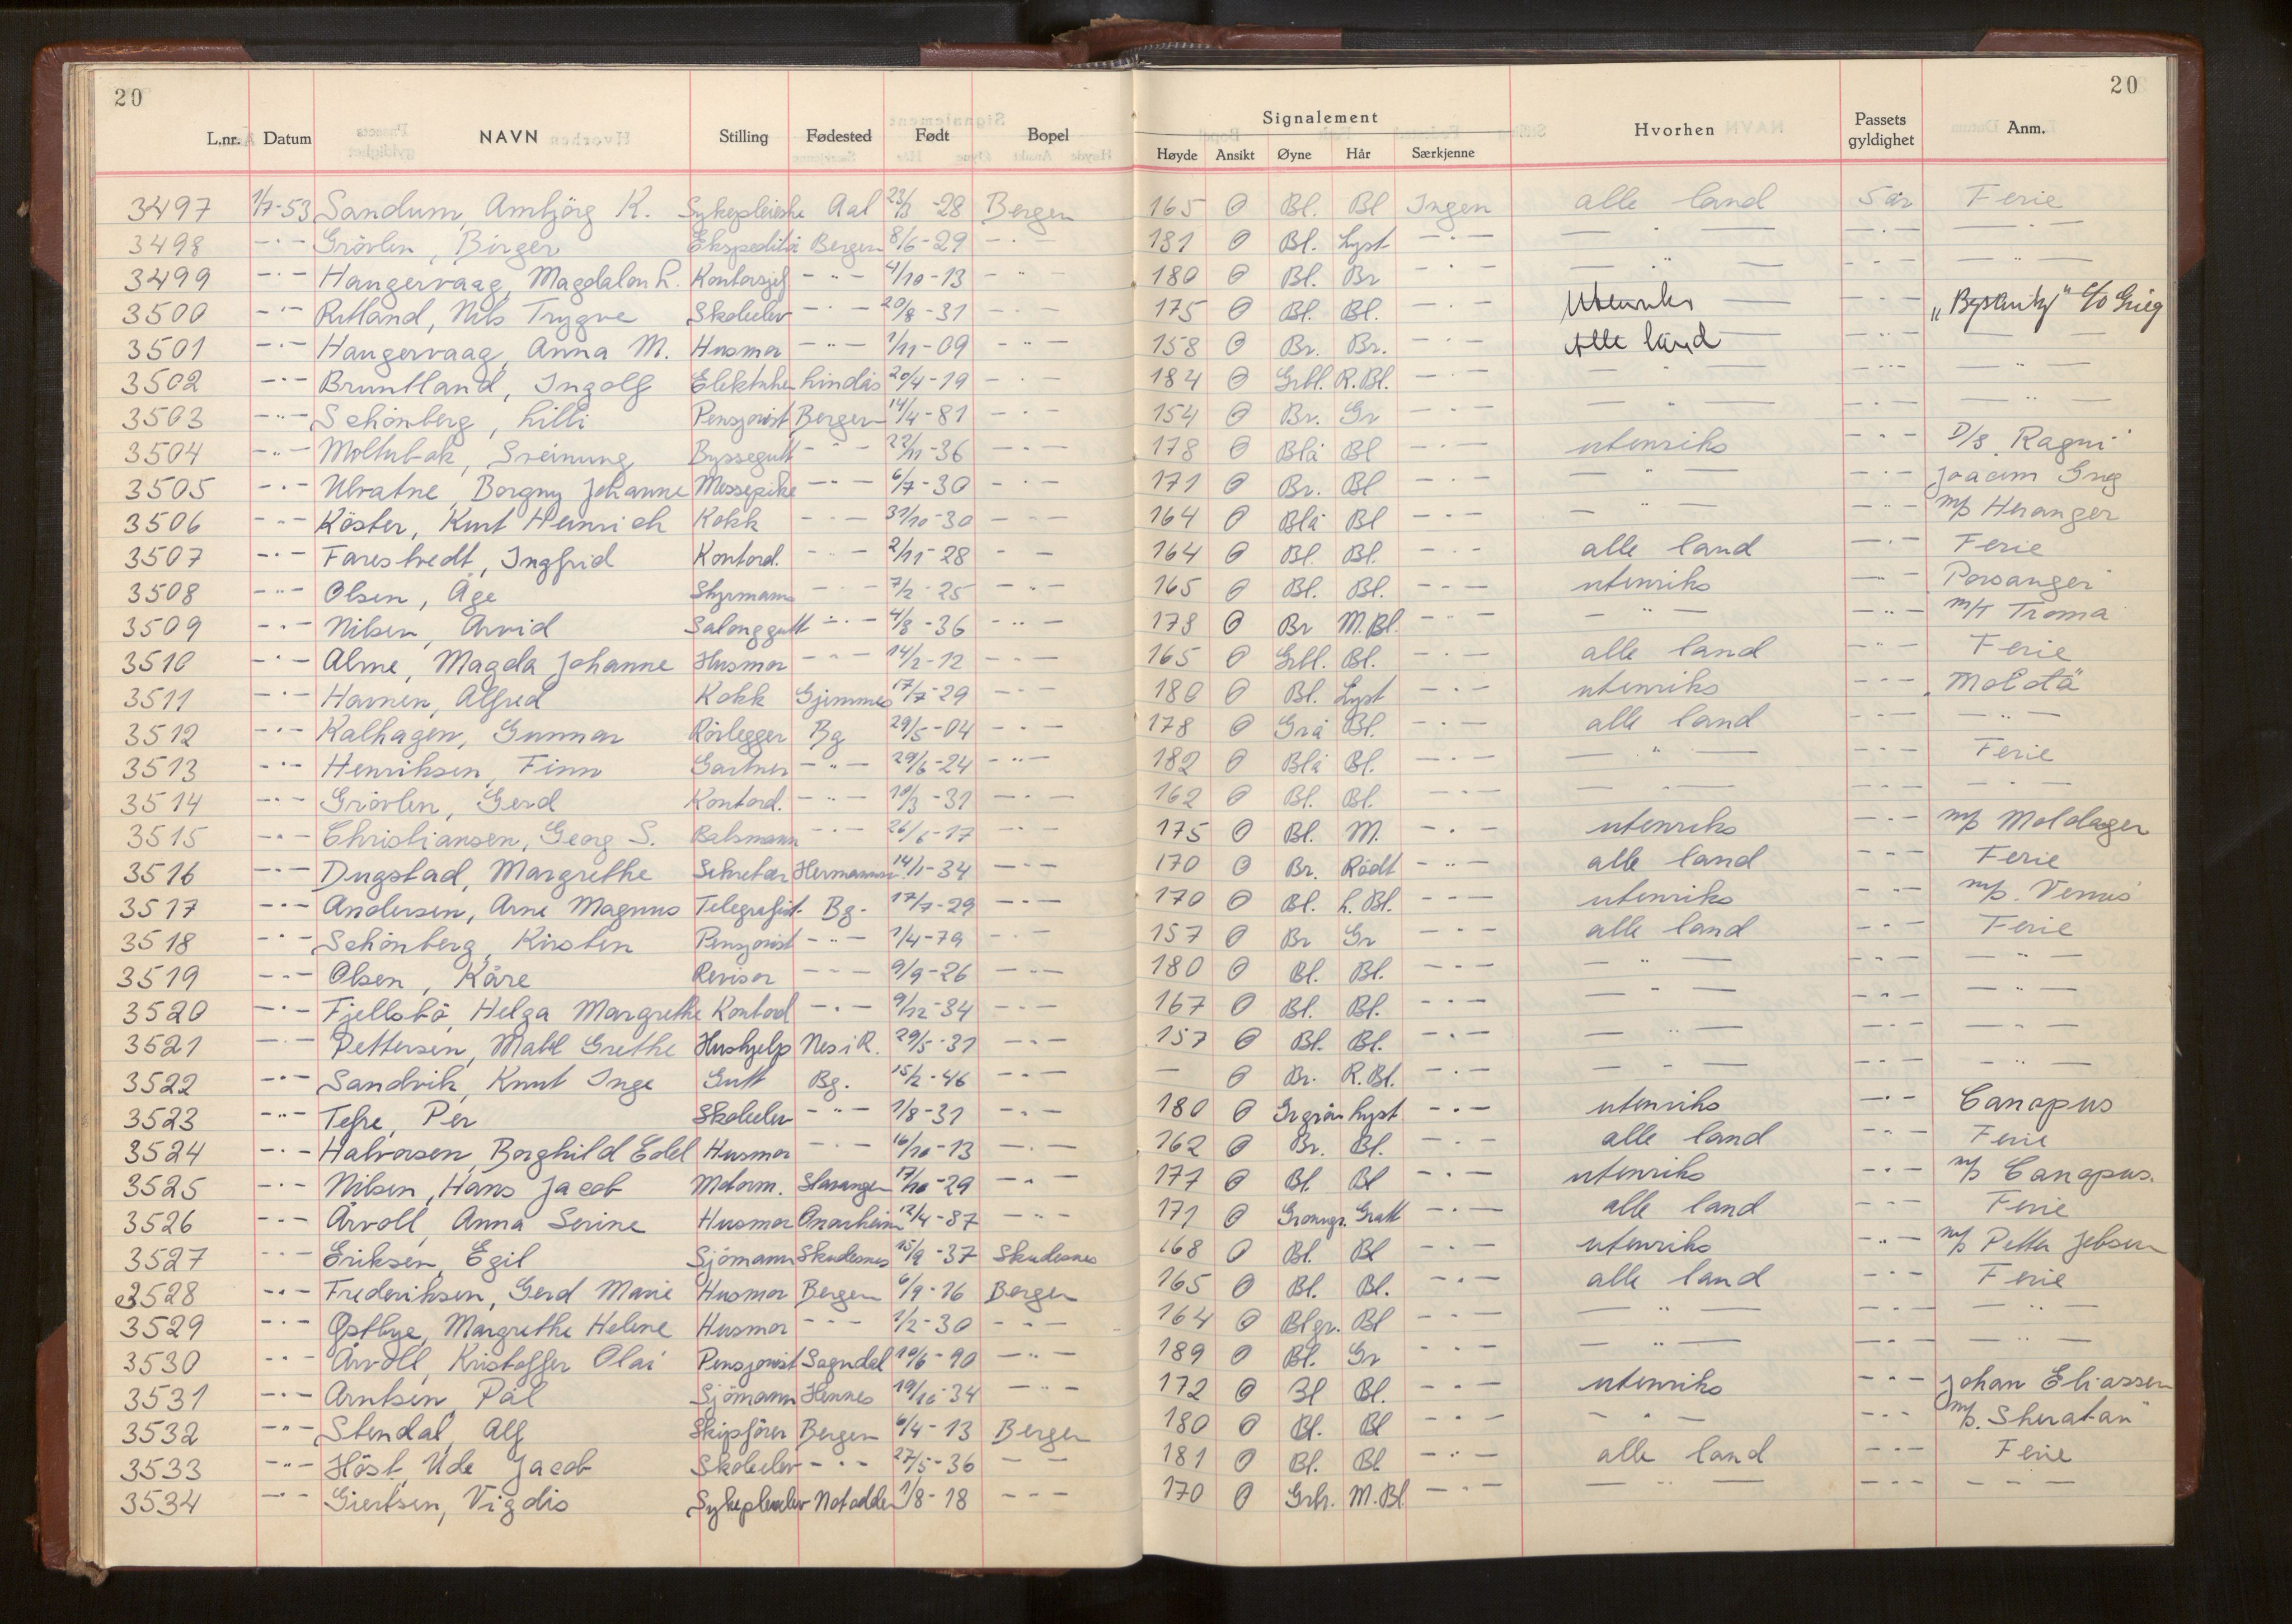 20 20
Signalement
L.nr. Datum NAVN Stilling Fødested Født Bopel Høyde Ansikt Øyne Hår Særkjenne Hvorhen Passets gyldighet Anm.
3497 1/7-53 Sandum, Ambjörg K. Sykepleierske Aal 23/3-28 Bergen 165 O Bl. Bl Ingen alle land 5 år Ferie
3498 -"- Grövlen, Birger Bergen 8/6-29 -"- 181 O Bl. Lyst -"- -"- -"- -"-
3499 -"- Hangervaag, Magdalon L. Kontorsjef -"- 4/10-13 -"- 180 O Bl. Br -"- -"- -"- -"-
3500 -"- Ritland, Nils Trygve Skoleelev -"- 20/8-31 -"- 175 O Bl. Bl. -"- Utenriks -"- c/o Grieg
3501 -"- Hangervaag, Anna M. Husmor -"- 1/11-09 -"- 158 O Br. Br. -"- Alle land -"- -"-
3502 -"- Bruntland, Ingolf Lindås 20/4-19 -"- 184 O Grbl. R.Bl. -"- -"- -"- -"-
3503 -"- Schönberg, Lilli Pensjonist Bergen 14/4-81 -"- 154 O Br. Gr -"- -"- -"- -"-
3504 -"- Moltubak, Sveinung Byssegutt -"- 22/11-36 -"- 178 O Blå Bl -"- utenriks -"- D/S Ragni
3505 -"- Ulvatne, Borgny Johanne Messepike -"- 6/7-30 -"- 171 O Br. Bl -"- -"- -"- Joacim Grieg
3506 -"- Köster, Kurt Heinrich Kokk -"- 31/10-30 -"- 164 O Blå Bl -"- -"- -"- m/s Heranger
3507 -"- Farestvedt, Ingfrid Kontord. -"- 2/11-28 -"- 164 O Bl. Bl. -"- alle land -"- Ferie
3508 -"- Olsen, Åge Styrmann -"- 7/2-25 -"- 165 O Bl. Bl. -"- utenriks -"- Porsanger
3509 -"- Nilsen, Arvid Salonggutt -"- 4/8-36 -"- 178 O Br M.Bl. -"- -"- -"- m/T Troma
3510 -"- Alme, Magda Johanne Husmor -"- 14/2-12 -"- 165 O Grbl. Bl. -"- alle land -"- Ferie
3511 -"- Havnen, Alfred Kokk Gjemmes 17/7-29 -"- 180 O Bl. Lyst -"- utenriks -"- Moldtä
3512 -"- Kalhagen, Gunnar Rörlegger Bg 29/5-04 -"- 178 O Grå Bl. -"- alle land -"- -"-
3513 -"- Henriksen, Finn Gartner -"- 29/6-24 -"- 182 O Blå Bl. -"- -"- -"- Ferie
3514 -"- Grövlen, Gerd Kontord. -"- 10/3-31 -"- 162 O Bl. Bl. -"- -"- -"- -"-
3515 -"- Christiansen, Georg S. Båtsmann -"- 26/6-17 -"- 175 O Bl. M. -"- utenriks -"- m/s Moldager
3516 -"- Dugstad, Margrethe Sekretær 14/1-34 -"- 170 O Br. Rödt -"- alle land -"- Ferie
3517 -"- Andersen, Arne Magnus Telegrafist Bg. 17/7-29 -"- 170 O Bl. L.Bl. -"- utenriks -"- m/s. Venus
3518 -"- Schönberg, Kirsten Pensjonist -"- 1/4-79 -"- 157 O Br Gr -"- alle land -"- Ferie
3519 -"- Olsen, Kåre Revisor -"- 9/9-26 -"- 180 O Bl. Bl. -"- -"- -"- -"-
3520 -"- Fjellsbö, Helga Margrethe Kontord -"- 9/12-34 -"- 167 O Bl. Bl. -"- -"- -"- -"-
3521 -"- Pettersen, Mabl Grethe Hushjelp Nes i R. 29/5-31 -"- 157 O Bl. Bl. -"- -"- -"- -"-
3522 -"- Sandvik, Knut Inge Gutt Bg. 15/2-46 -"- — O Br. R.Bl. -"- -"- -"- -"-
3523 -"- Tefre, Per Skoleelev -"- 1/8-31 -"- 180 O Grgrön Lyst -"- utenriks -"- Canopus
3524 -"- Halvorsen, Borghild Edel Husmor -"- 16/10-13 -"- 162 O Br. Bl. -"- alle land -"- Ferie
3525 -"- Nilsen, Hans Jacob Motorm. Stavanger 17/10-29 -"- 177 O Bl. Bl -"- utenriks -"- m/s Canopus.
3526 -"- Årvoll, Anna Serine Husmor Onarheim 12/4-87 -"- 171 O Gröngr. Gratt -"- alle land -"- Ferie
3527 -"- Eriksen, Egil Sjömann Skudesnes 15/9-37 Skudesnes 168 O Bl. Bl -"- utenriks -"- m/s Petter Jebsen
3528 -"- Frederiksen, Gerd Marie Husmor Bergen 6/9-16 Bergen 165 O Bl. Bl. -"- alle land -"- Ferie
3529 -"- Østbye, Margrethe Helene Husmor -"- 1/2-30 -"- 164 O Blgr. Bl -"- -"- -"- -"-
3530 -"- Årvoll, Kristoffer Olai Pensjonist Sogndal 10/6-90 -"- 189 O Bl. Gr -"- -"- -"- -"-
3531 -"- Arntsen, Pål Sjömann Hennes 19/10-34 -"- 172 O Bl Bl. -"- utenriks -"- Johan Eliassen
3532 -"- Stendal, Alf Skipsförer Bergen 6/4-13 Bergen 180 O Bl. Bl -"- -"- -"- m/s. Sheratan
3533 -"- Höst, Ude Jacob Skoleelev -"- 27/5-36 -"- 181 O Bl. Bl -"- alle land -"- Ferie
3534 -"- Giertsen, Vigdis Notodden 1/8-18 -"- 170 O Grbr. M.Bl -"- -"- -"- -"-